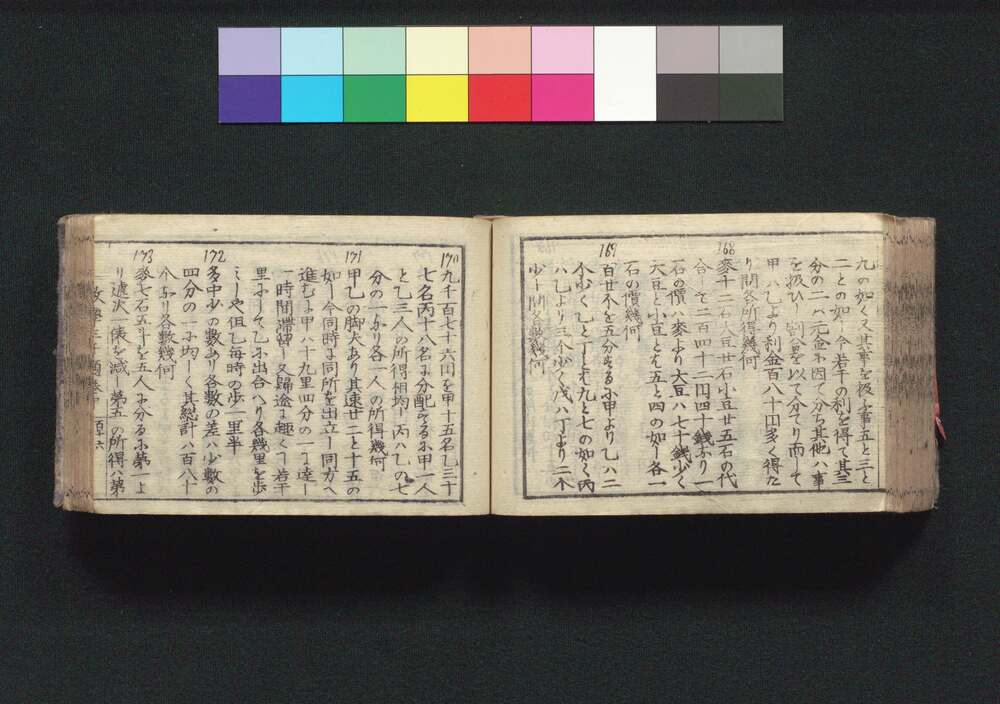 九の如く又其事を扱ふ事五と三と
二との如し今若干の利を得て其三
分の二ハ元金ホ因て分ち其他ハ事
を扱ひし 割合を以て分てり而して
甲ハ乙より利金百八十円多く得た
り問各所得幾何
168
麥十二石大豆廿石小豆廿五石の代
合して二百四十二円四十錢なり一
石の價ハ麥より大豆ハ七十錢少く
大豆と小豆とハ五と四の如し各一
石の價幾何
169
百廿个を五分するホ甲より乙ハ二
个少く乙と丁とハ九と七の如く丙
ハ乙より三个少く戊ハ丁より二个
少し問各數幾何
170
九千百七十六円を甲十五名乙三十
七名丙十八名に分配するに甲一人
と乙三人の所得相均し丙ハ乙の七
分の一なり各一人の所得幾何
171
甲乙の脚夫あり其速廿二と十五の
如し今同時に同所を出立し同方へ
進むに甲ハ十九里四分の一に達し
一時間滯留し又歸途に趣くこ若干
里にして乙ホ出合へり各幾里を歩
ミしや但乙毎時の歩二里半
172
多中少の數あり各數の差ハ少數の
四分の一ホ均しく其総計ハ百八十
个なり各數幾何
173
麥七石五斗を五人ホ分るホ第一よ
り遞次一俵を減し第五の所得ハ第